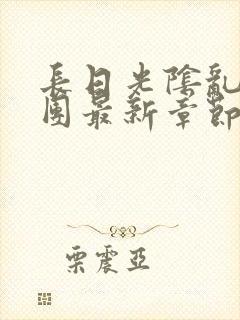 長日光陰亂
團最新章節
栗震亞